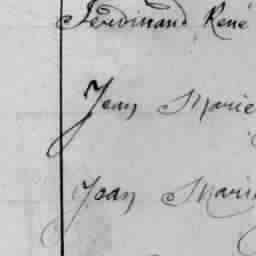 Ferdinand René
Jean Marie
Jean Marie